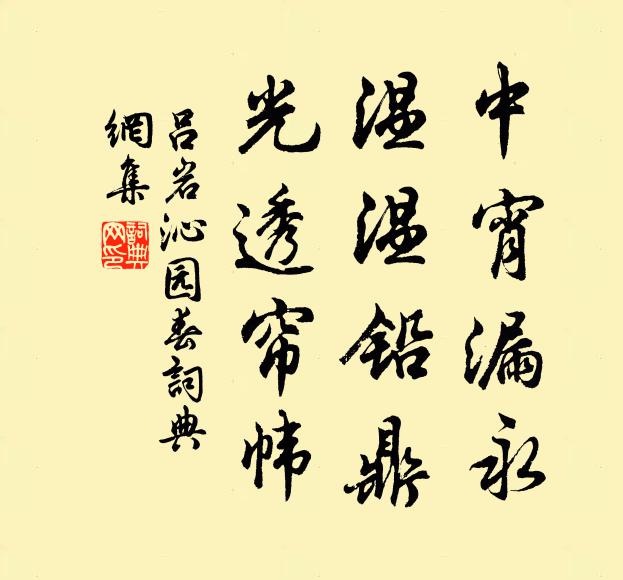 中宵漏永
温温铅鼎
光透帘帏
吕岩沁园春詞典
網集
詞典
网印